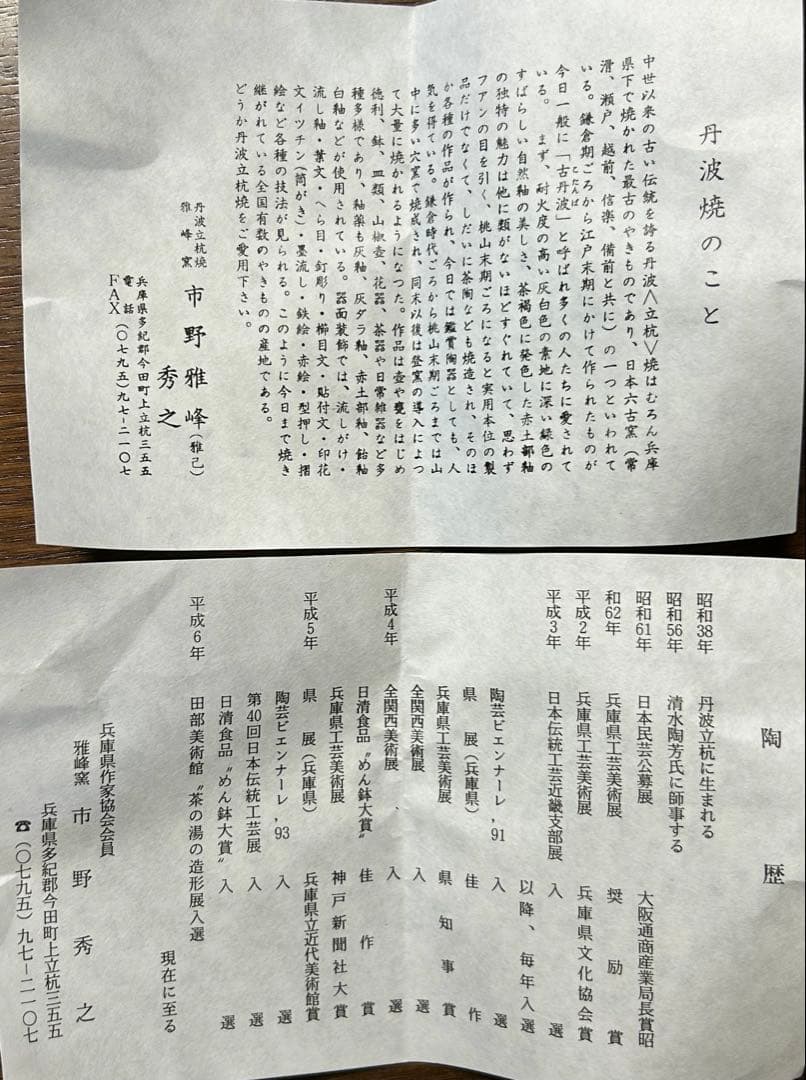 丹波焼のこと
中世以来の古い伝統を誇る丹波＜立杭＞焼はむろん兵庫
県下で焼かれた最古のやきものであり、日本六古窯（常
滑、瀬戸、越前、信楽、備前と共に）の一つといわれて
いる。鎌倉期ごろから江戸末期にかけて作られたものが
今日一般に「古丹波」と呼ばれ多くの人たちに愛されて
こたんば
いる。まず、耐火度の高い灰白色の素地に深い緑色の
すばらしい自然釉の美しさ、茶褐色に発色した赤土部釉
の独特の魅力は他に類がないほどすぐれていて、思わず
フアンの目を引く、桃山末期ごろになると実用本位の製
品だけでなくて、しだいに茶陶なども焼造され、そのほ
か各種の作品が作られ、今日では鑑賞陶器としても、人
気を得ている。鎌倉時代ごろから桃山末期ごろまでは山
中に多い穴窯で焼成され、同末以後は登窯の導入によつ
て大量に焼かれるようになつた。作品は壺や甕をはじめ
徳利、鉢、皿類、山椒壺、花器、茶器や日常雑器など多
種多様であり、釉薬も灰釉、灰ダラ釉、赤土部釉、飴釉
白釉などが使用されている。器面装飾では、流しがけ・
流し釉・葉文・へら目・釘彫り・櫛目文・貼付文・印花
文イツチン（筒がき）・墨流し・鉄絵・赤絵・型押し・摺
絵など各種の技法が見られる。このように今日まで焼き
継がれている全国有数のやきものの産地である。
どうか丹波立杭焼をご愛用下さい。
丹波立杭焼
雅峰窯 市野雅峰（雅己）
秀之
兵庫県多紀郡今田町上立杭三五五
電話（〇七九五）九七－二一〇七
FAX
陶歴
昭和38年 丹波立杭に生まれる
昭和56年 清水陶芳氏に師事する
昭和61年 日本民芸公募展 大阪通商産業局長賞昭
和62年 兵庫県工芸美術展 奨励賞
平成2年 兵庫県工芸美術展 兵庫県文化協会賞
平成3年 日本伝統工芸近畿支部展 入選
以降、毎年入選
陶芸ビエンナーレ，91 入選
県展（兵庫県） 佳作
兵庫県工芸美術展 県知事賞
全関西美術展 入選
平成4年 全関西美術展、 入選
日清食品〝めん鉢大賞〟 佳作賞
兵庫県工芸美術展 神戸新聞社大賞
平成5年 県展（兵庫県） 兵庫県立近代美術館賞
陶芸ビエンナーレ，93 入選
第40回日本伝統工芸展 入選
日清食品〝めん鉢大賞〟 入選
平成6年 田部美術館〝茶の湯の造形展入選
現在に至る
兵庫県作家協会会員
雅峰窯 市野秀之
兵庫県多紀郡今田町上立杭三五五
☎（〇七九五）九七－二一〇七